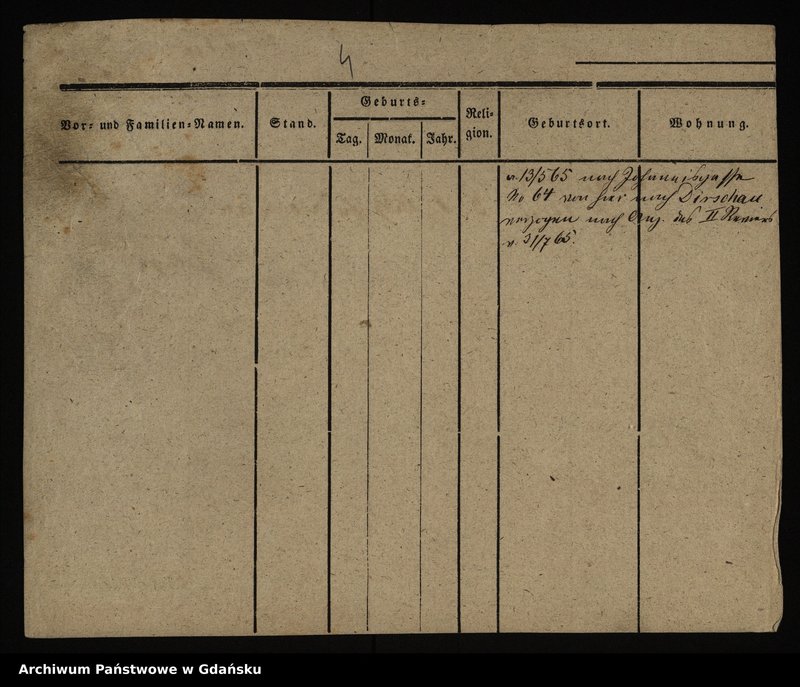 4
Vor- und Familien-Namen.
Stand.
Geburts-
Tag.
Monat.
Jahr.
Reli-
gion.
Geburtsort.
Wohnung.
a. 13/5 65 nach Johannisgasse
No 64 von hier nach Dirschau
verzogen nach Anz. des II Reviers
v. 31/7 65.
Archiwum Państwowe w Gdańsku